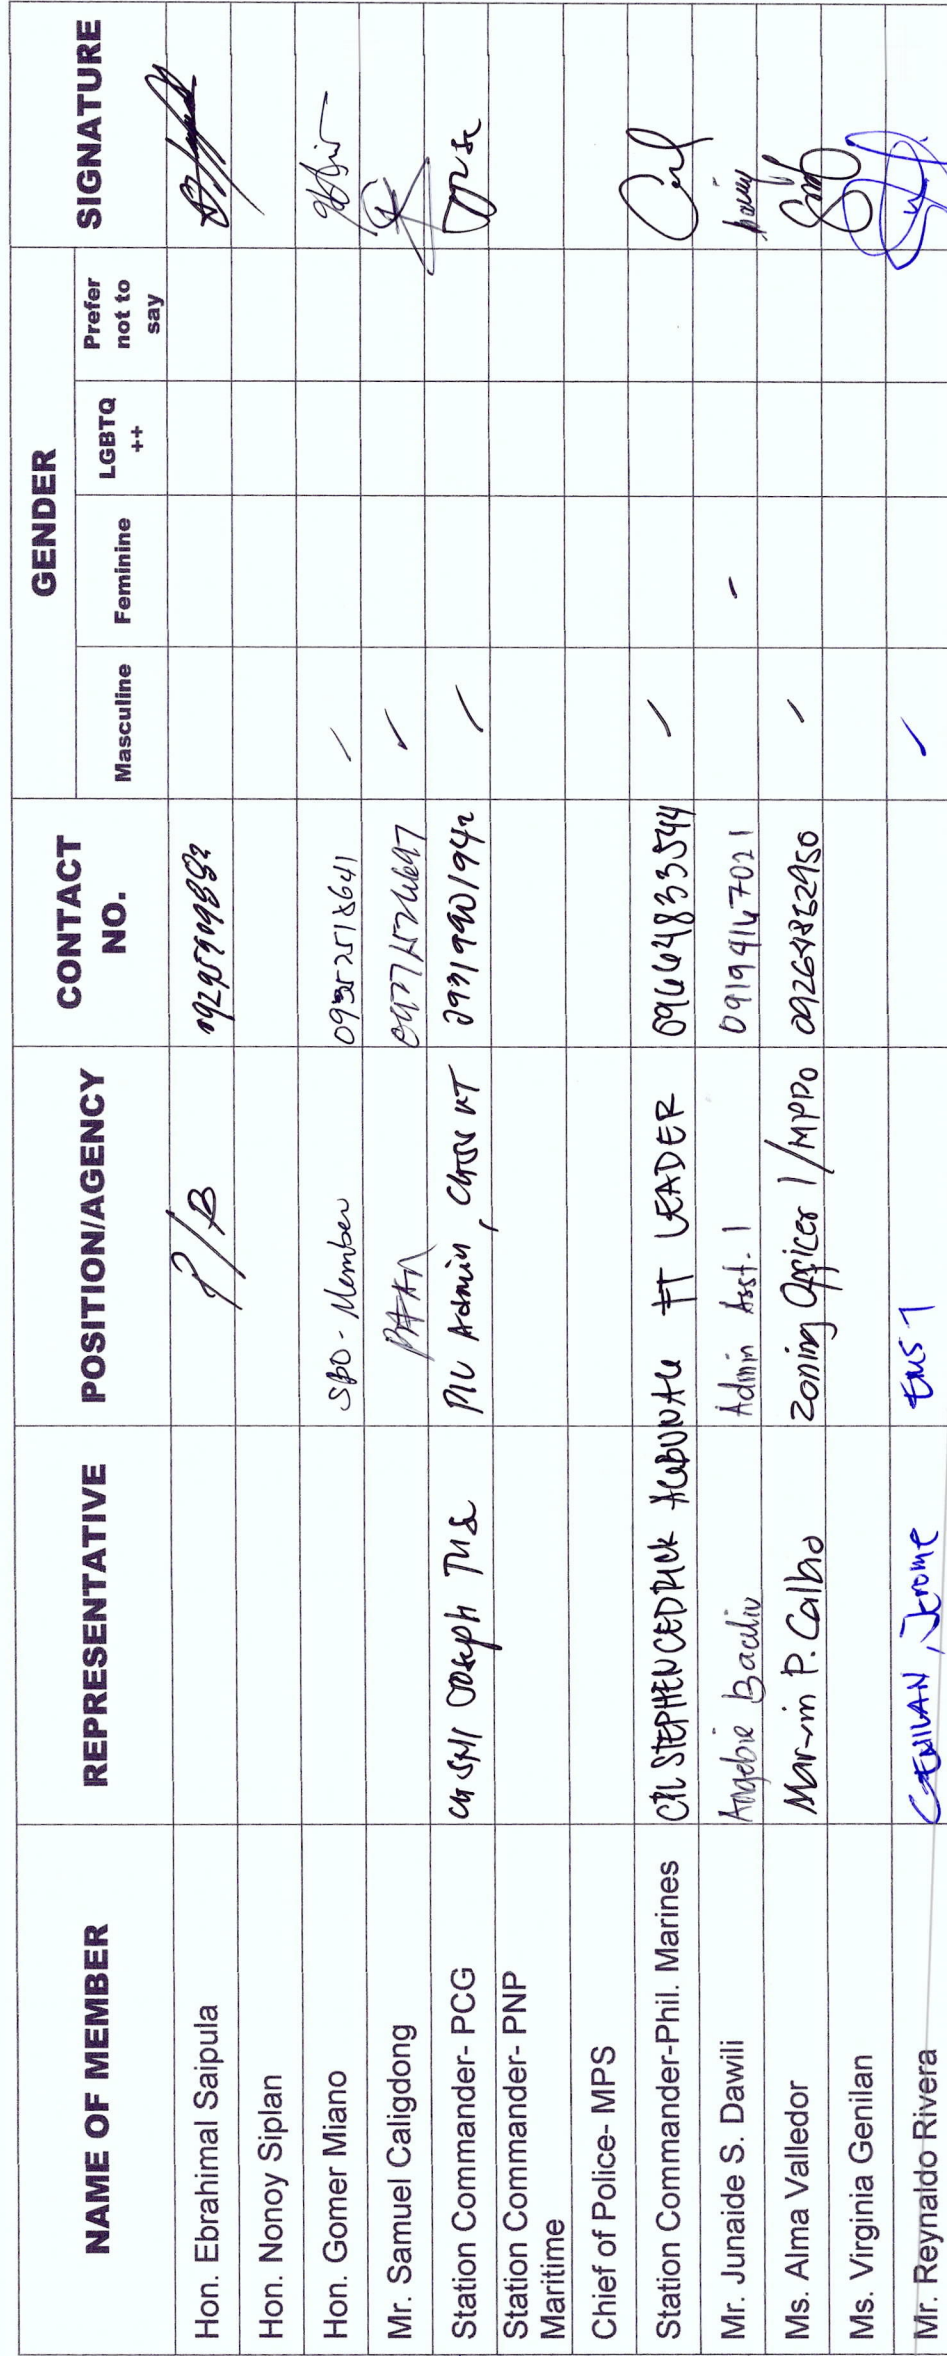 NAME OF MEMBER REPRESENTATIVE POSITION/AGENCY CONTACT NO. GENDER SIGNATURE
Masculine Feminine LGBTQ ++ Prefer not to say
Hon. Ebrahimal Saipula P/B
Hon. Nonoy Siplan
Hon. Gomer Miano SBO - Member 09352518641
Mr. Samuel Caligdong
Station Commander- PCG Joseph PIO Admin, 09319901942
Station Commander- PNP
Maritime
Chief of Police- MPS
Station Commander-Phil. Marines STEPHENCEDRICK FT LEADER 09664833544
Mr. Junaide S. Dawili Angebie Bacaliv Admin Asst. 1 09194147021
Ms. Alma Valledor Marvin P. Calbio Zoning Officer 1/MPDO 09264862950
Ms. Virginia Genilan
Mr. Reynaldo Rivera GENILAN, Jerome